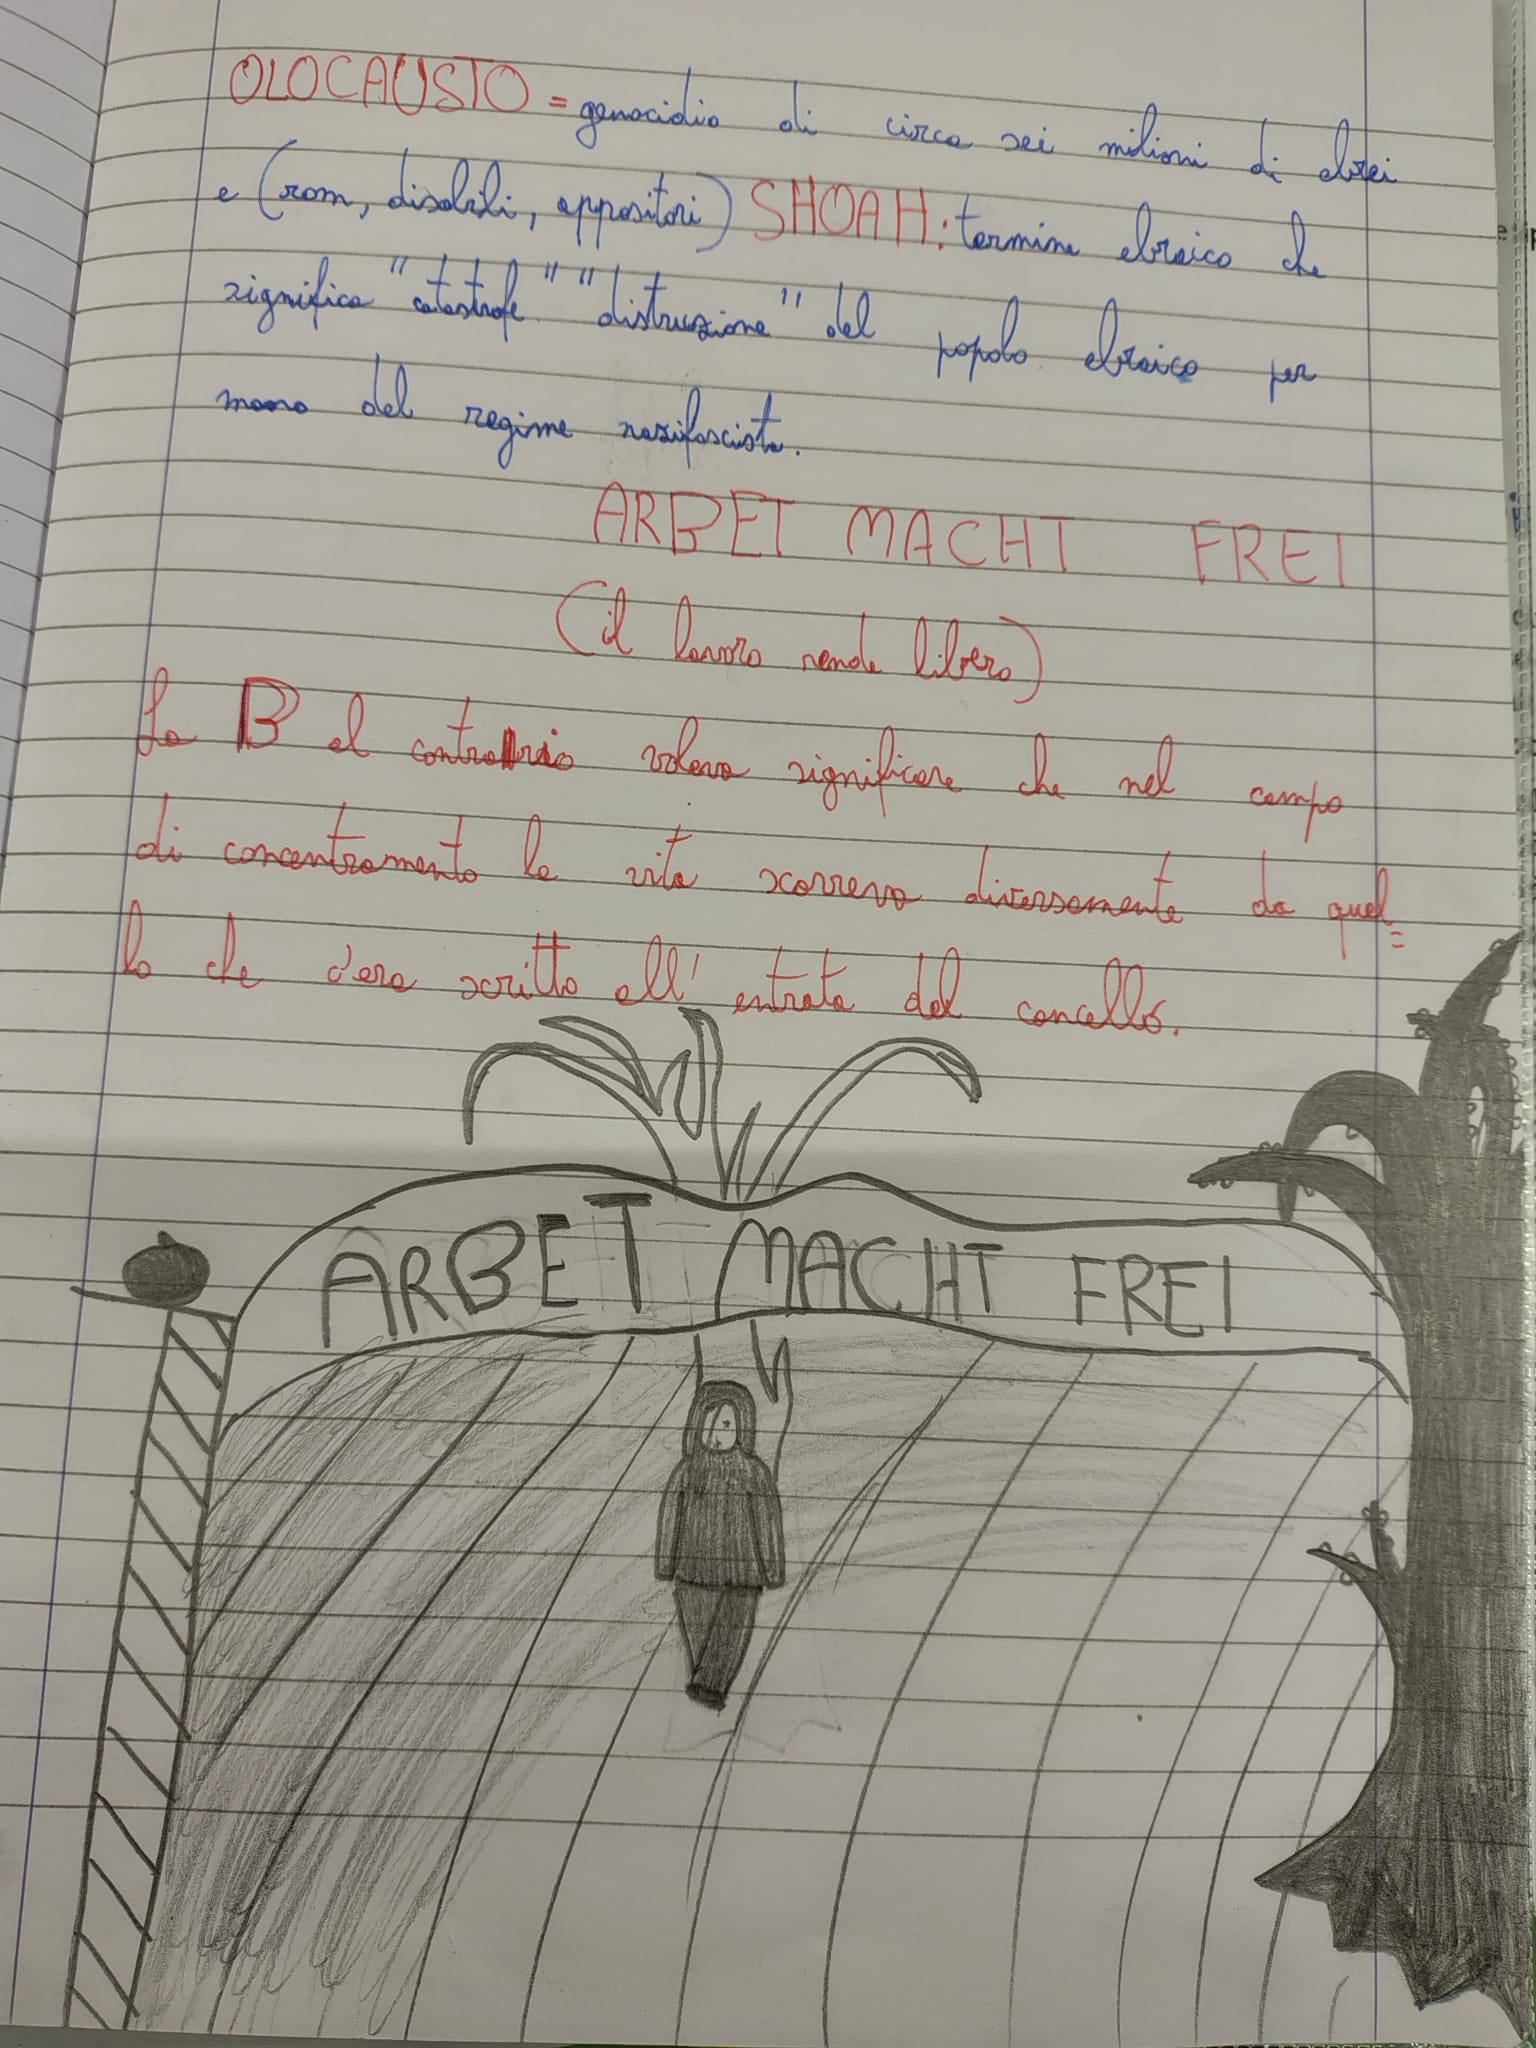 OLOCAUSTO = genocidio di circa sei milioni di ebrei
e (rom, disabili, oppositori) SHOAH: termine ebraico che
significa "catastrofe" "distruzione" del popolo ebraico per
mano del regime nazifascista.
ARBET MACHT FREI
(il lavoro rende libero)
La B al contrario voleva significare che nel campo
di concentramento la vita scorreva diversamente da quel=
lo che c'era scritto all'entrata del cancello.
ARBET MACHT FREI